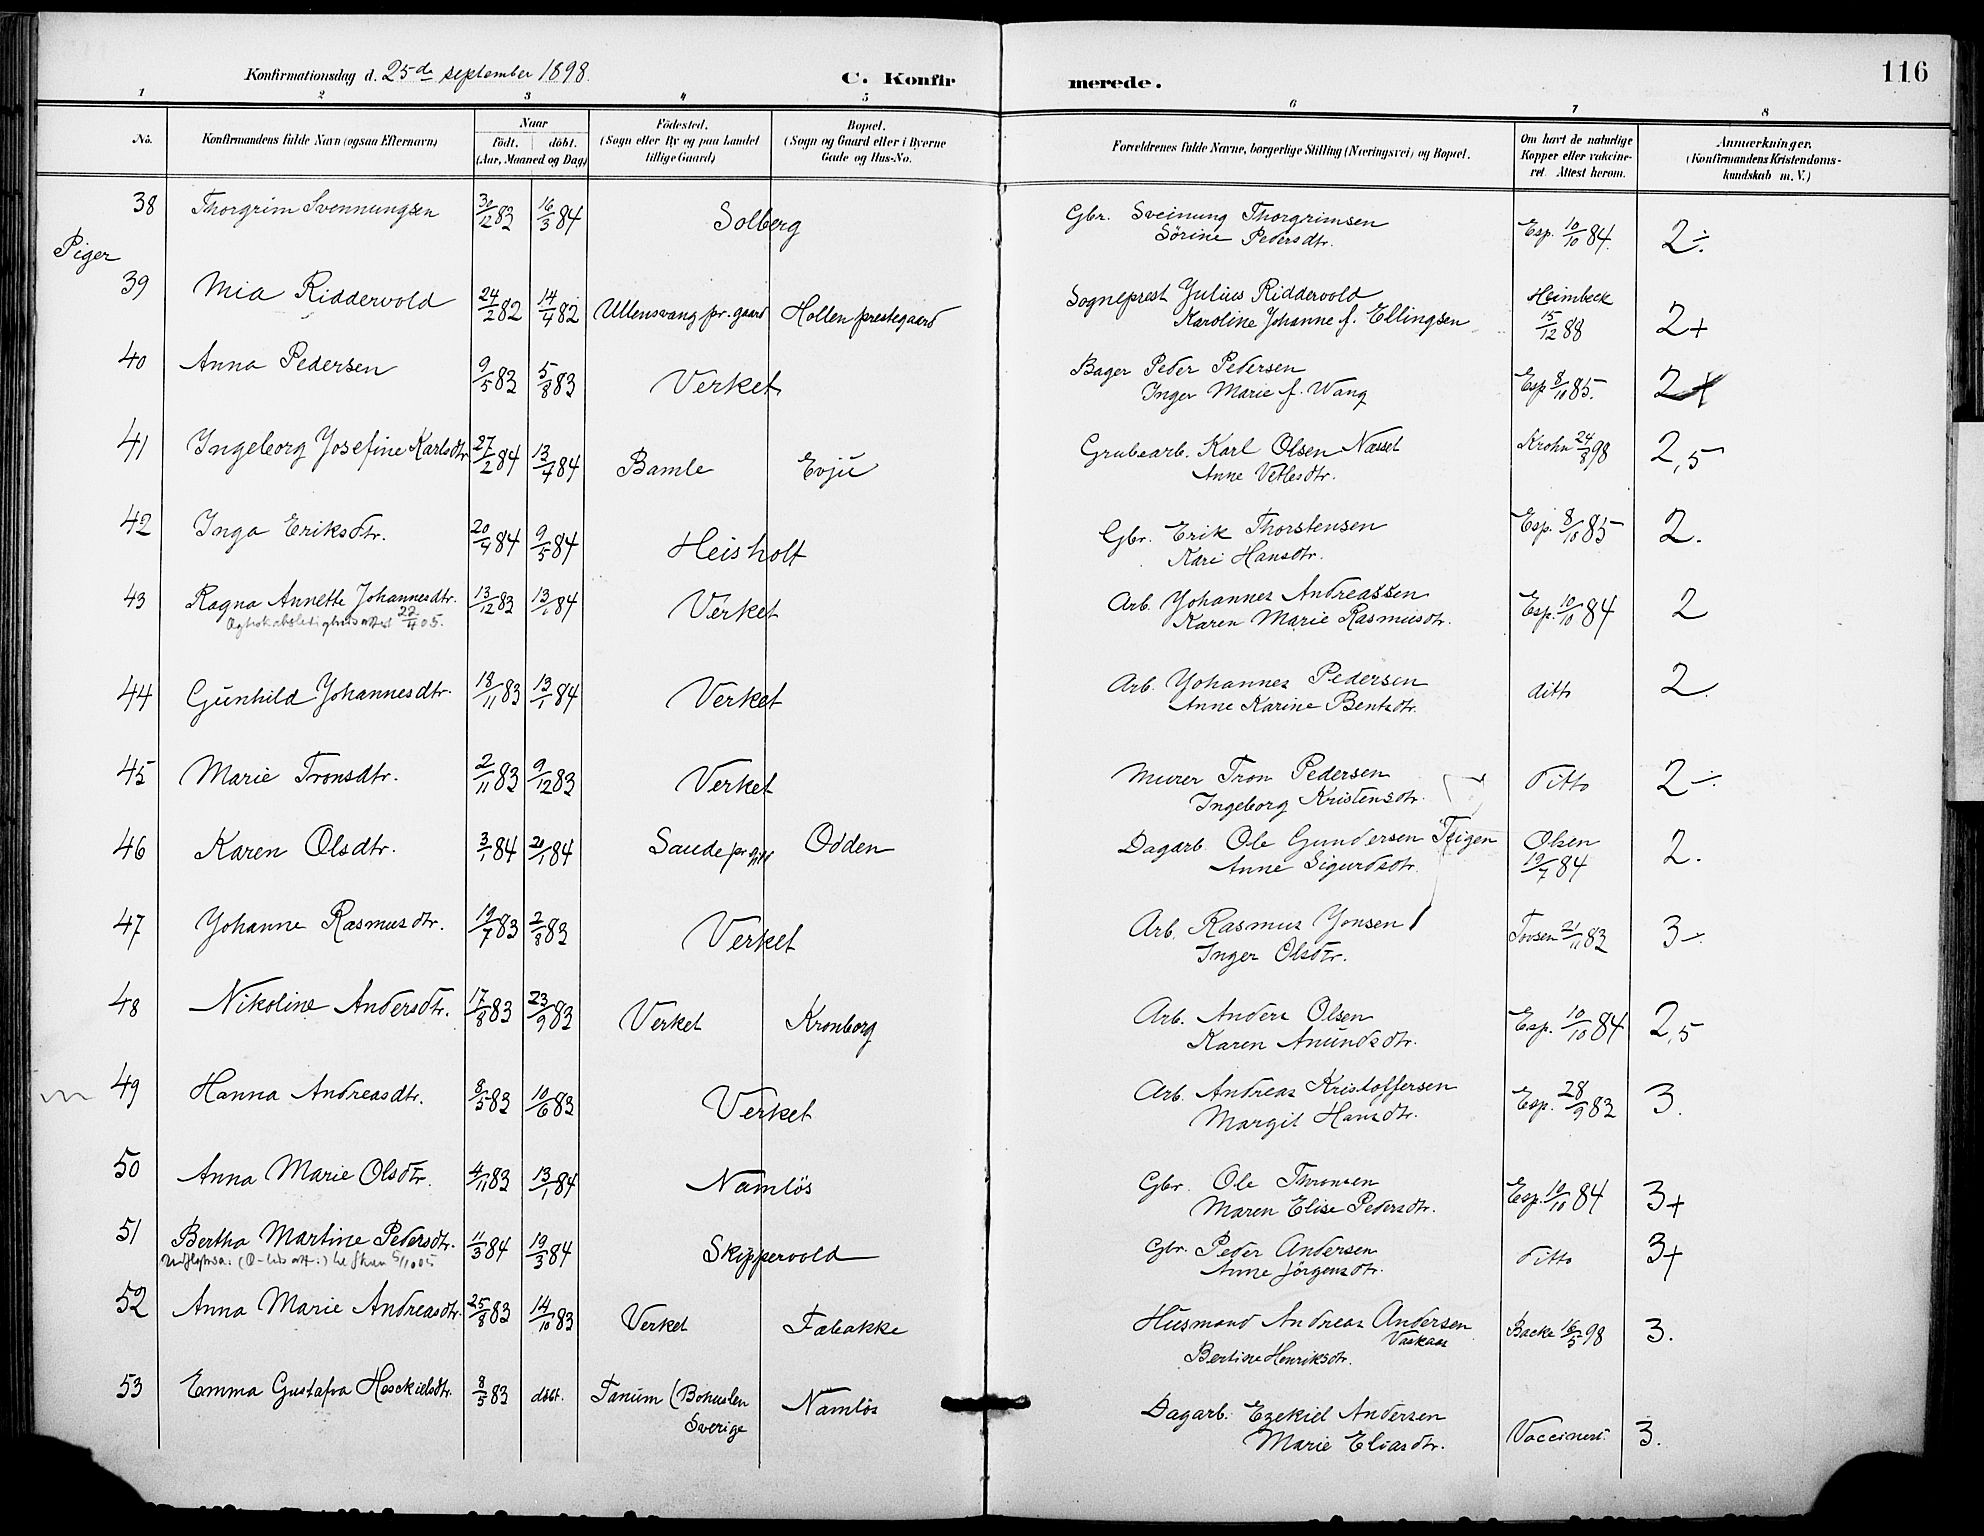 Konfirmationsdag d. 25de september 1898.
C. Konfir
merede.
116
1 2 3 4 5 6 7 8
No.
Konfirmandens fulde Navn (ogsaa Efternavn)
Naar
födt. döbt.
(Aar, Maaned og Dag)
Födested.
(Sogn eller By og paa Landet
tillige Gaard)
Bopæl.
(Sogn og Gaard eller i Byerne
Gade og Hus-No.
Forældrenes fulde Navne, borgerlige Stilling (Næringsvei) og Bopæl.
Om havt de naturlige
Kopper eller vakcine-
ret. Attest herom.
Anmærkninger.
(Konfirmandens Kristendoms-
kundskab m. V.)
38 Thorgrim Svennungsen 30/12 83 16/3 84 Solberg Gbr. Sveinung Thorgrimsen Esp. 10/10 84. 2 ÷.
Sörine Pedersdtr.
Piger
39 Mia Riddervold 24/2 82 14/4 82 Ullensvang pr. gaard Hollen prestegaard Sogneprest Julius Riddervold Heimbeck 2+
Karoline Johanne f. Ellingsen 15/12 88
40 Anna Pedersen 9/5 83 5/8 83 Verket Bager Peder Pedersen Esp 8/10 85. 2
Inger Marie f. Wang
41 Ingeborg Josefine Karlsdtr 27/2 84 13/4 84 Bamle Evju Grubearb. Karl Olsen Næsset Krohn 24/8 98 2,5
Anne Vetlesdtr.
42 Inga Eriksdtr. 20/4 84 9/5 84 Heisholt Gbr. Erik Thorstensen Esp. 8/10 85 2.
Kari Hansdtr.
43 Ragna Annette Johannesdtr. 13/12 83 13/1 84 Verket Arb. Johannes Andreassen Esp. 10/10 84 2
22/4 05. Karen Marie Rasmusdtr.
44 Gunhild Johannesdtr. 18/11 83 13/1 84 Verket Arb. Johannes Pedersen ditto 2.
Anne Karine Bentsdtr.
45 Marie Tronsdtr. 2/11 83 9/12 83 Verket Murer Tron Pedersen Ditto 2 ÷.
Ingeborg Kristensdtr.
46 Karen Olsdtr. 3/1 84 20/1 84 Saude Odden Dagarb. Ole Gundersen Teigen Olsen 2.
Anne Sigurdsdtr. 19/7 84
47 Johanne Rasmusdtr. 19/7 83 2/8 83 Verket Arb. Rasmus Jonsen 21/11 83 3 ÷.
Inger Olsdtr.
48 Nikoline Andersdtr. 17/8 83 23/9 83 Verket Kronborg Arb. Anders Olsen Esp. 10/10 84 2,5
Karen Anundsdtr.
49 Hanna Andreasdtr. 8/5 83 10/6 83 Verket Arb. Andreas Kristoffersen Esp. 28/9 83 3.
Margit Hansdtr.
50 Anna Marie Olsdtr. 4/11 83 13/1 84 Namlös Gbr. Ole Thronsen Esp. 10/10 84 3+
Maren Elise Pedersdtr.
51 Bertha Martine Pedersdtr. 11/3 84 19/3 84 Skippervold Gbr. Peder Andersen Ditto 3+
Anne Jörgensdtr.
52 Anna Marie Andreasdtr. 25/8 83 14/10 83 Verket Fæbakke Husmand Andreas Andersen Backe 16/5 98 3.
Vaskaas
Bertine Henriksdtr.
53 Emma Gustafva Hesekielsdtr. 8/5 83 döbt. Tanum (Bohuslen Namlös Dagarb. Ezekiel Andersen Vaccinert. 3.
Sverige Marie Eliasdtr.